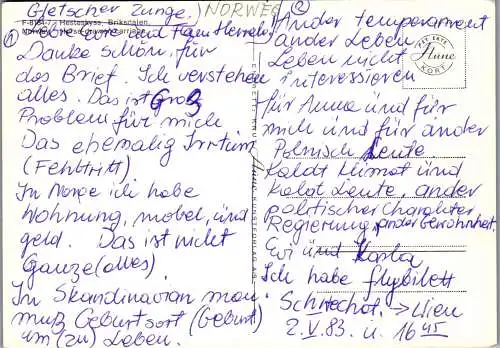 Gletscher Zunge.) NORWEG
F-8184-7 Hesteskyss, Briksdalen,
① Liebe und Frau Herrela!
Danke schön, für
das Brief. Ich verstehen
alles. Das ist Groß
Problem für mich
Das ehemalig Irrtum
(Fehltritt).
In Norge ich habe
Wohnung, mobel, und
geld. Das ist nicht
Ganze (alles).
In Skandinavian man
muß Geburtsort (Geburt)
um (zu) Leben.
②
Ander temperament
ander Leben.
Leben nicht
interessieren
für Anna und für
mich und für ander
Polnisch Leute
Kaldt Klimat und
Kalot Leute, ander
politischer Charakter
Regierung, ander Gewohnheit.
Ewi und Karla
Ich habe flybilett
Schwechat. → Wien
2. V. 83. u. 16 45
EKTE
Aune
KORT